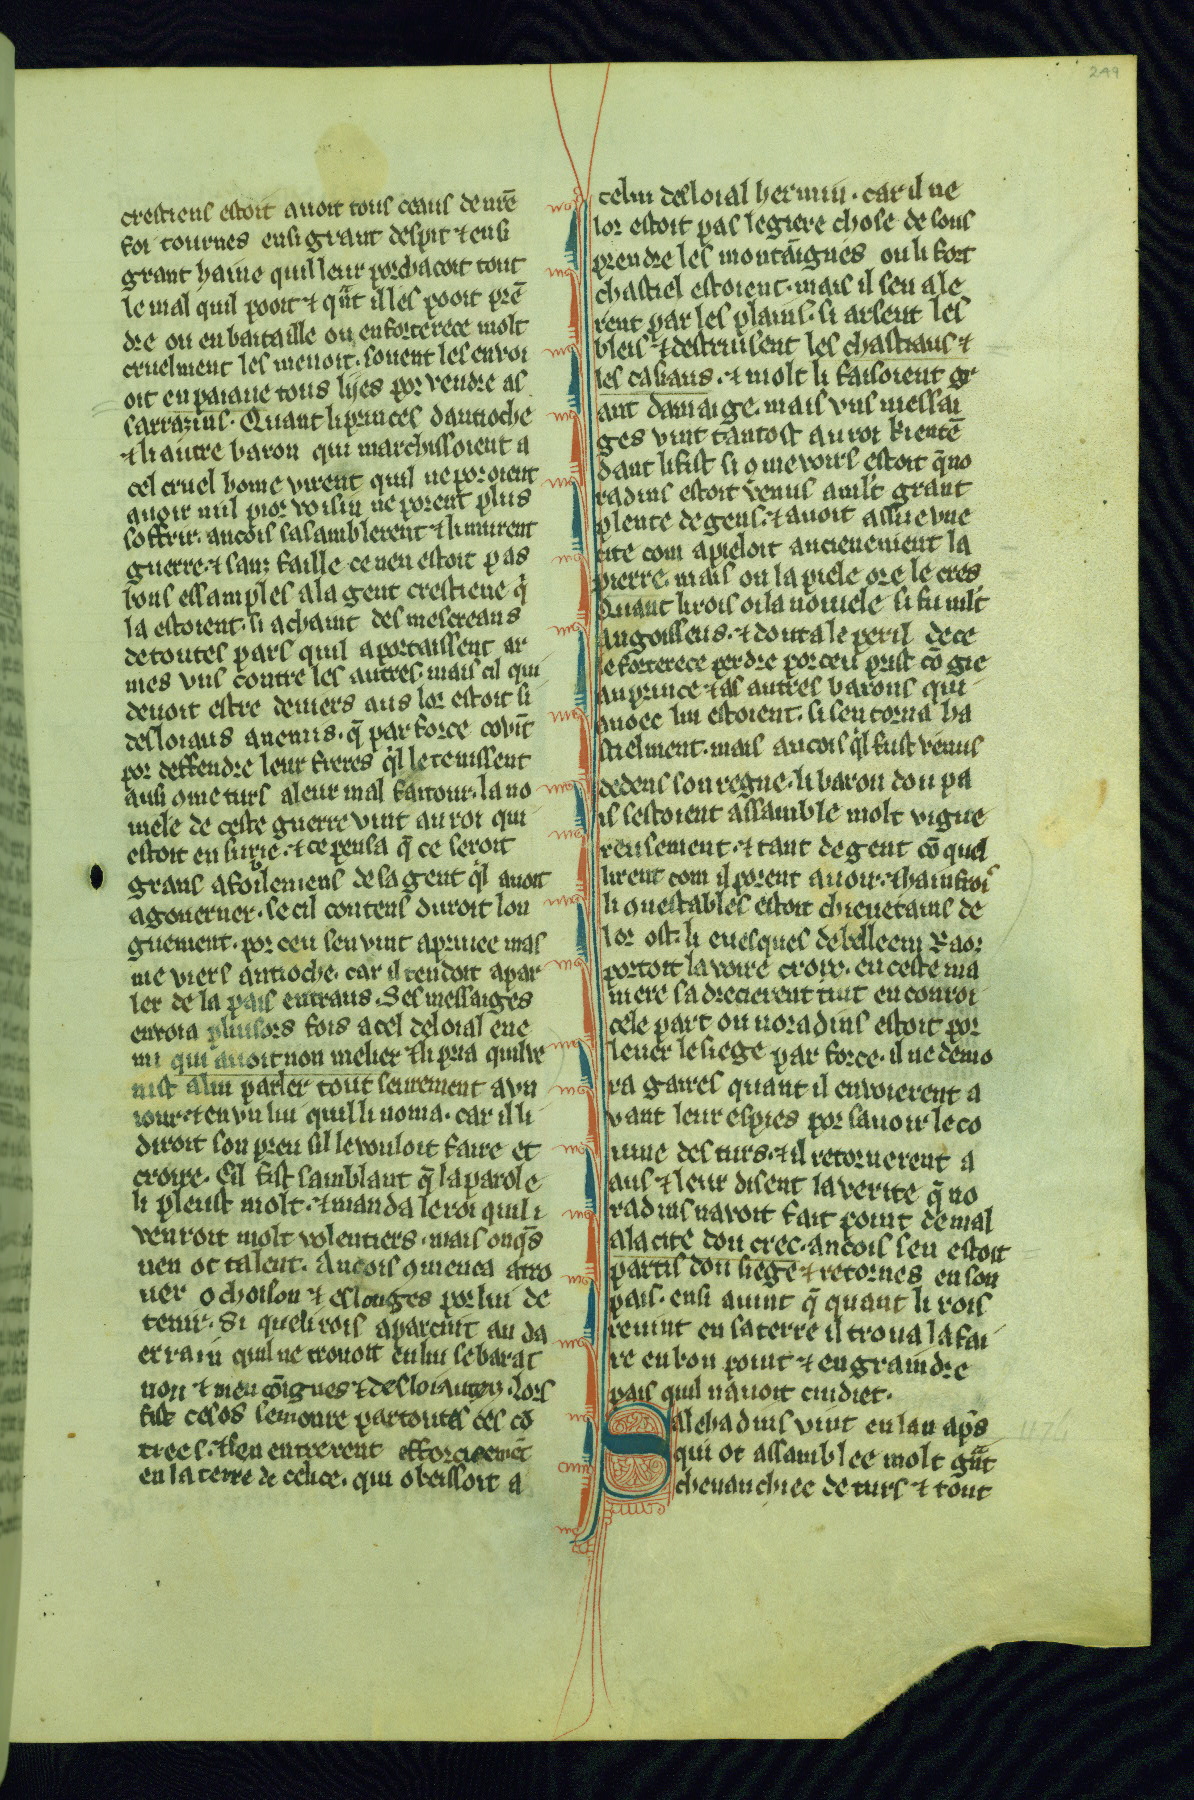 249
crestiens estoit auoit tous ceaus de nr̄e
foi tournes en si grant despit ⁊ en si
grant haine quil leur porchacoit tout
le mal quil pooit ⁊ qͣnt il les pooit prē
dre ou en bataille ou en forterece molt
cruelment les menoit. souent les enuoi
oit en paiane tous lijes por vendre as
sarrazins. Quant li princes dantioche
⁊ li autre baron qui marchissoient a
cel cruel home virent quil ne poroient
auoir nul pior voisin ne porent plus
soffrir. ancois sasamblerent ⁊ li murent
guerre. ⁊ sanz faille ce nen estoit pas
bons essamples a la gent crestiene q̄
la estoient. si achaint des mescreans
de toutes pars quil aportaissent ar
mes vns contre les autres. mais cil qui
deuoit estre deuiers aus lor estoit si
desloiaus anemis. q̄ par force couīt
por deffendre leur freres q̓l le tenissent
ausi ꝯme turs a leur mal faitour. la no
uiele de ceste guerre vint au roi qui
estoit en surie. ⁊ ce pensa q̄ ce seroit
grans afoilemens de sa gent q̓l auoit
a gouerner. se cil contens duroit lon
guement. por ceu sen vint a priuee mas
nie viers antioche. car il tendoit a par
ler de la pais entraus. Ses messaiges
enuoia plusors fois a cel desloial ene
mi qui auoit non melier ⁊ li pria quil ve
nist a lui parler tout seurement a vn
iour. ⁊ en vn liu quil li noma. car il li
diroit son preu sil le vouloit faire et
croire. Cil fist samblant q̄ la parole
li pleust molt. ⁊ manda le roi quil i
venroit molt volentiers. mais onq̄s
nen ot talent. Ancois ꝯmenca a tro
uer ochoison ⁊ eslonges por lui de
tenir. Si que li rois aparcuit au da
errain quil ne trouoit en lui se barat
non ⁊ mencōignes ⁊ desloiautez. lors
fist ces os semonre par toutes ces cō
trees. ⁊ sen entrerent efforcieemēt
en la terre de celice. qui obeissoit a
celui desloial hermin. car il ne
lor estoit pas legiere chose de sous
prendre les montāignes ou li fort
chastiel estoient. mais il sen ale
rent par les plains. si arsent les
bleis ⁊ destruisent les chastiaus ⁊
les casiaus. ⁊ molt li faisoient gr
ant damaige. mais vns messai
ges vint tantost au roi ki entē
dant li fist si ꝯme voirs estoit q̄ no
radins estoit venus a mlt grant
plente de gens. ⁊ auoit assise vne
cite com apieloit ancienement la
pierre. mais on la piele ore le cres
Quant li rois oi la nouuiele si fu mlt
angoisseus. ⁊ douta le peril de ce
le forterece perdre por ceu prist cō gie
au prince ⁊ as autres barons qui
auoec lui estoient. si sen torna ha
stielment. mais ancois q̓l fust venus
dedens son regne. li baron dou pa
is sestoient assamble molt vigue
reusement. ⁊ tant de gent cō quel
lirent com il porent auoir. ⁊ hainfrois
li ꝯnestables estoit chieuetains de
lor ost. li euesques de belleem Raor
portoit la voire croix. en ceste ma
niere sadrecierent tuit en conroi
cele part ou noradins estoit por
leuer le siege par force. il ne demo
ra gaires quant il enuoierent a
vant leur espies por sauoir le co
uine des turs. ⁊ il retornerent a
aus ⁊ leur disent la verite q̄ no
radins nauoit fait point de mal
a la cite dou crec. ancois sen estoit
partis dou siege ⁊ retornes en son
pais. ensi auint q̄ quant li rois
reuint en sa terre il troua lafai
re en bon point ⁊ en graindre
pais quil nauoit cuidiet.
Salehadins vint en lan ap̄s
qui ot assamblee molt gͣnt
cheuauchiee de turs ⁊ tout